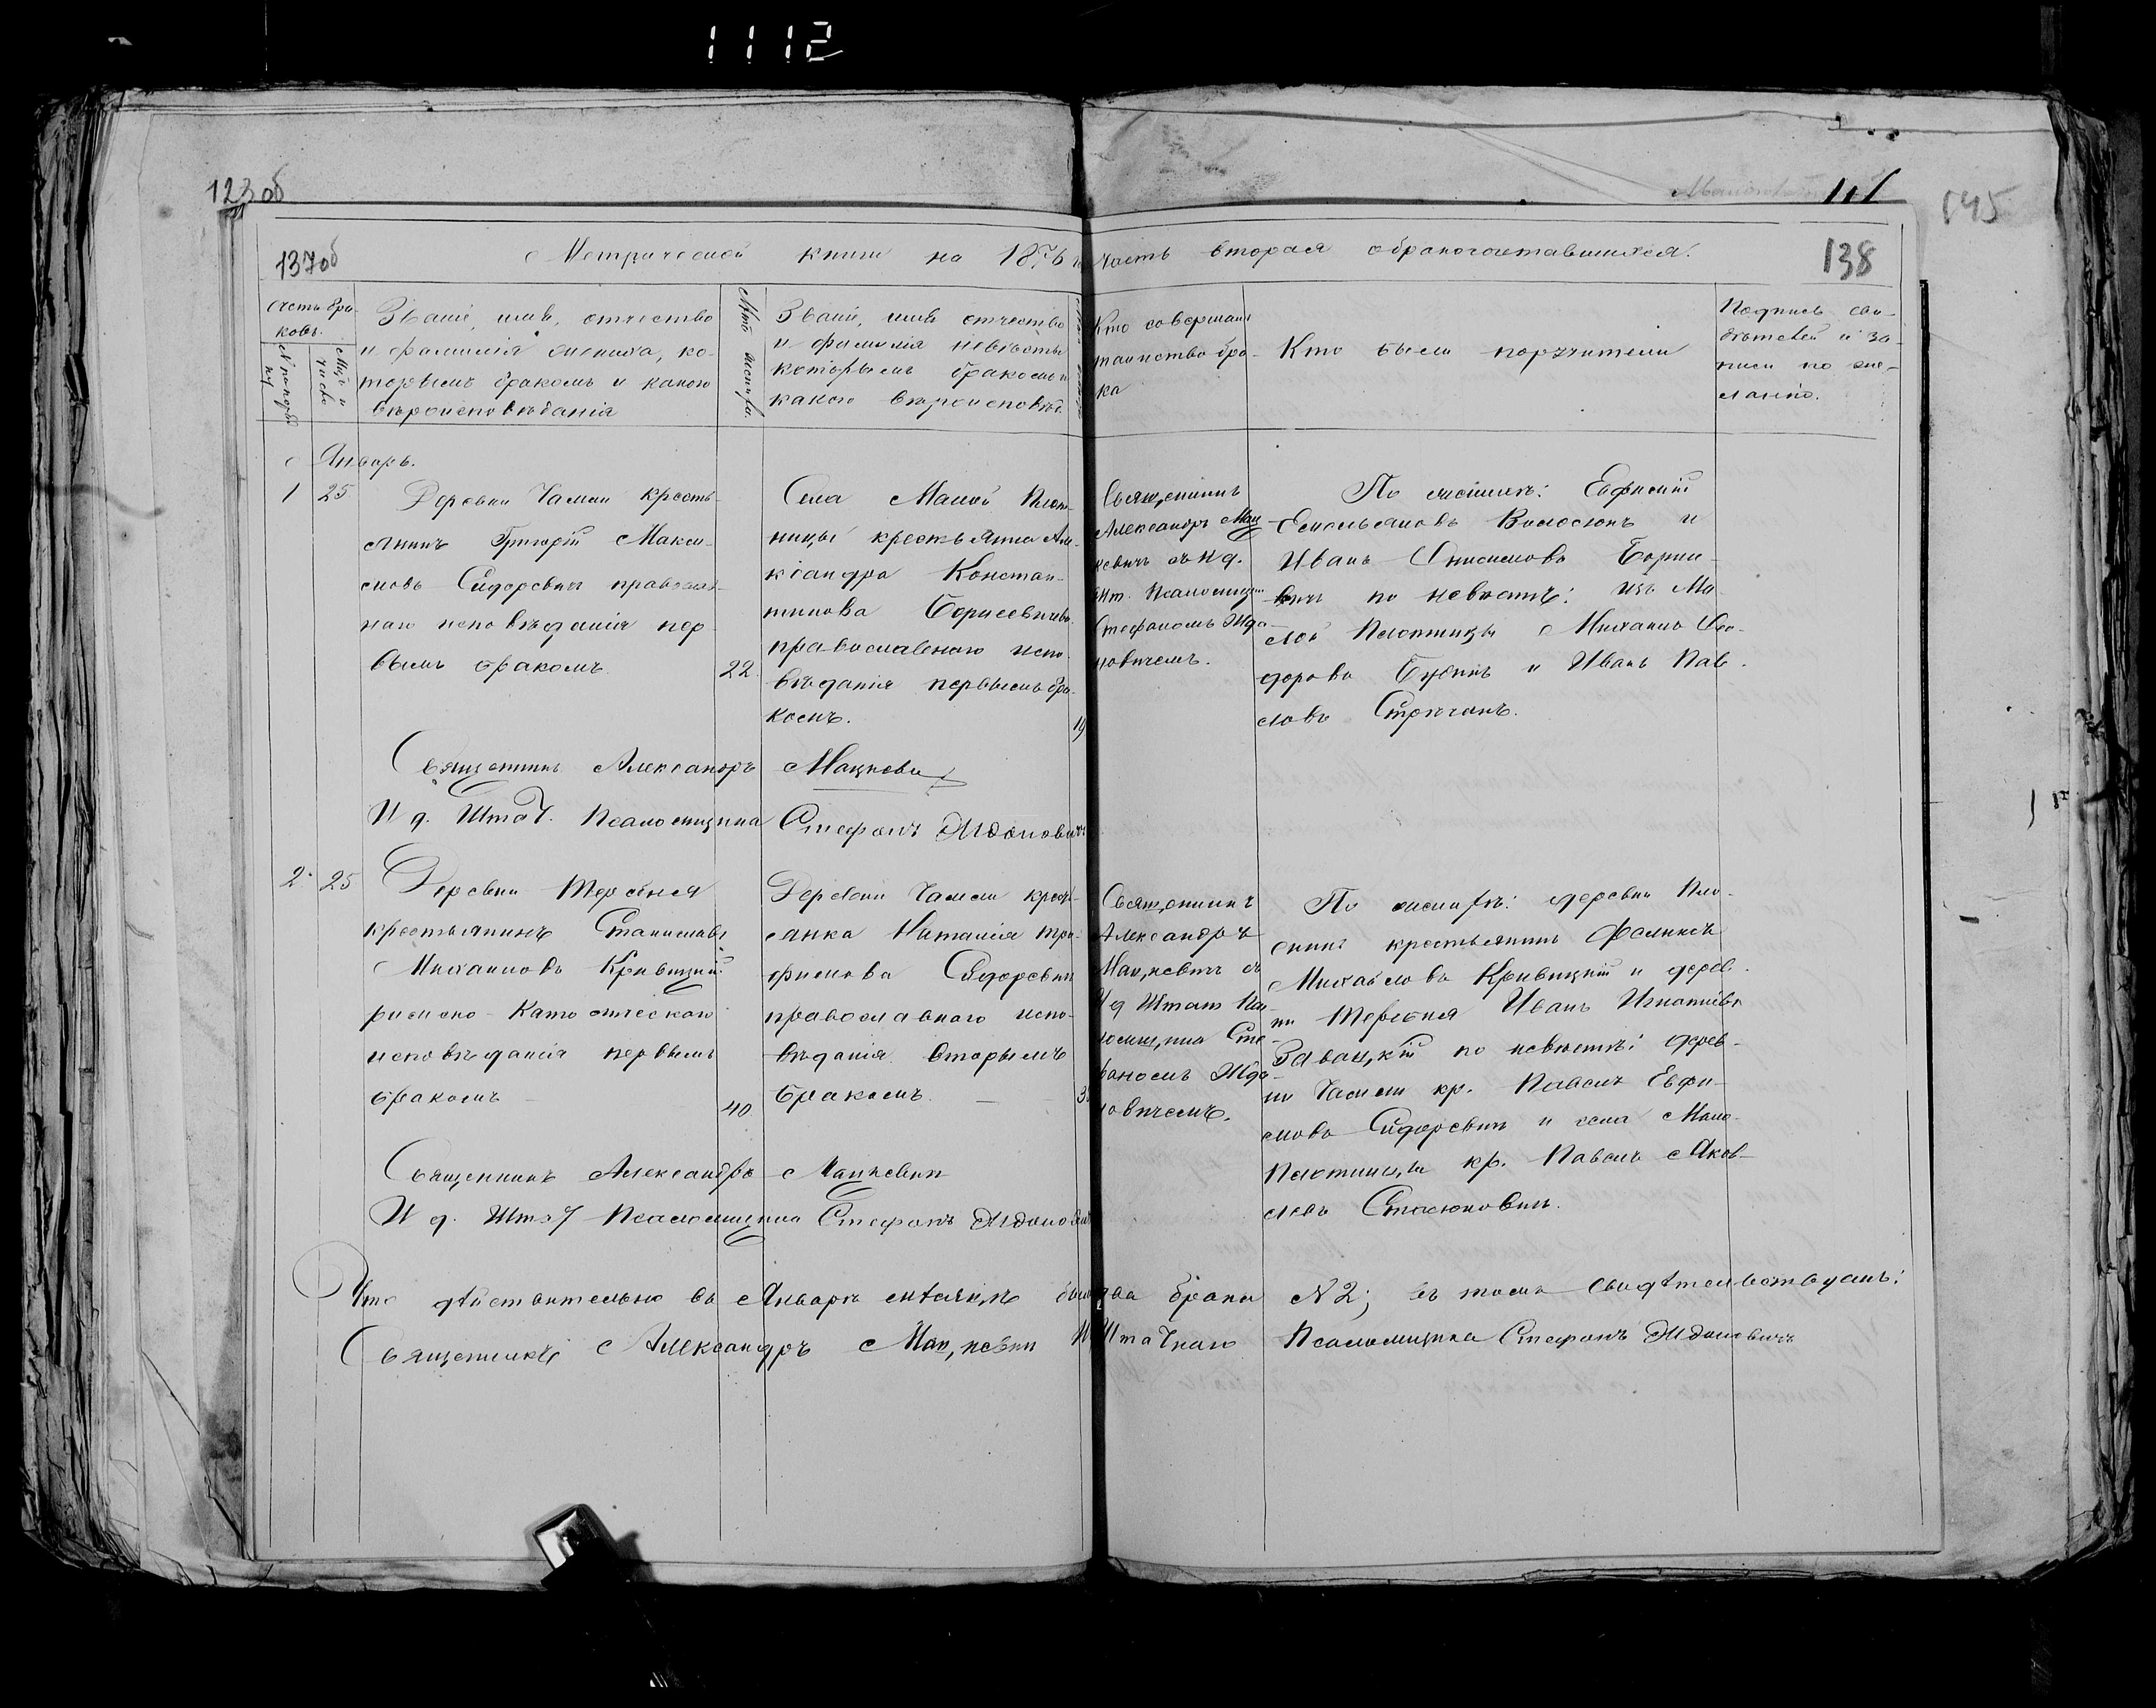 1112
123об
111
145
137об
138
Метрической книги на 1876 г часть вторая о бракосочетавшихся.
Счетъ бра-
ковъ.
Мцъ и
число
Званіе, имя, отчество
и фамилія жениха, ко-
торымъ бракомъ и какого
вѣроисповѣданія
Лѣта жениха.
Званіе, имя отчество
и фамилія невѣсты
которымъ бракомъ и
какого вѣроисповѣд.
Кто совершалъ
таинство бра-
ка
Кто были поручители
Подпись сви-
дѣтелей и за-
писи по же-
ланію.
Январь.
1 25
Деревни Чамли кресть-
янинъ Григорій Макси-
мовъ Сидоревичъ православ-
наго исповѣданія пер-
вымъ бракомъ
22.
Села Малой Плот-
ницы крестьянка Але-
ксандра Констан-
тинова Борисевичева
православнаго испо-
вѣданія первымъ бра-
комъ.
19
Священникъ
Александръ Мац-
кевичъ съ и д.
шт. Псаломщик
Стефаномъ Жда-
новичемъ.
По женихѣ: Евфимій
Емельяновъ Волосюкъ и
Иванъ Онисимовъ Бори-
вичъ по невѣстѣ: изъ Ма-
лой Плотницы Михаилъ Фео-
дорова и Иванъ Пав-
ловъ
Священникъ Александръ Мацкевичъ
И д. Штат. Псаломщика Стефанъ Ждановичъ
2. 25
Деревни Теребня
крестьянинъ Станиславъ
Михаиловъ Кривицкій
римско-католическаго
исповѣданія первымъ
бракомъ
40
Деревни Чамли кресть-
янка Наталія Тро-
фимова Сидоревич
православнаго испо-
вѣданія вторымъ
бракомъ.
Священникъ
Александръ
Мацкевичъ съ
И д Штат Пса-
ломщика Сте-
фаномъ Жда-
новичемъ.
По женихѣ: деревни
крестьянинъ Феликсъ
Михайлова Кривицкій и дерев-
ни Теребня Иванъ Игнатіевъ
Завацкій по невѣстѣ: дерев-
ни Чамли кр. Павелъ Евфи-
мовъ Сидоревичъ и села Мало-
Плотницы кр. Павелъ Яков-
левъ Стасюковичъ.
Священникъ Александръ Мацкевичъ
И д. Штат Псаломщика Стефанъ Ждановичъ
Что дѣйствительно въ Январѣ мѣсяцѣ было два брака №2; въ томъ свидѣтельствуемъ:
Священникъ Александръ Мацкевичъ И Штатнаго Псаломщика Стефанъ Ждановичъ